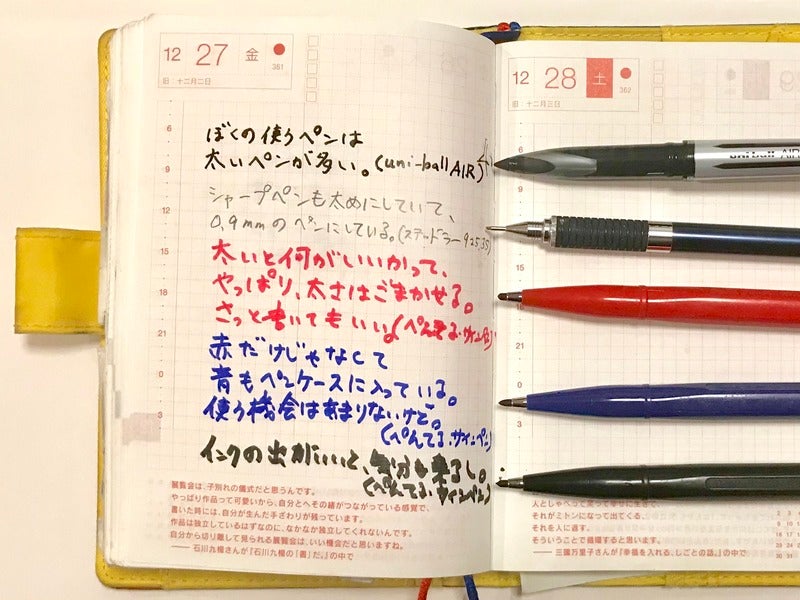 12 27 金
361
旧 十二月二日
6
9
12
15
18
21
0
3
ぼくの使うペンは
太いペンが多い。(uni-ball AIR)
シャープペンも太めにしていて、
0.9mmのペンにしている。(ステッドラー925 35)
太いと何がいいかって、
やっぱり、太さはごまかせる。
さっと書いてもいい。(ぺんてる・サインペン)
赤だけじゃなくて
青もペンケースに入っている。
使う機会はあまりないけど。
(ぺんてる・サインペン)
インクの出がいいと、気分も乗るし。
(ぺんてる・サインペン)
展覧会は、子別れの儀式だと思うんです。
やっぱり作品って可愛いから、自分とへその緒がつながっている感覚で、
書いた時には、自分が生んだ手ざわりが残っています。
作品は独立しているはずなのに、なかなか独立してくれないんです。
自分から切り離して見られる展覧会は、いい機会だと思いますね。
── 石川九楊さんが『石川九楊の「書」だ。』の中で
12 28 土
362
旧 十二月三日
6
9
12
15
21
0
3
uni-ball AIR
それがミトンになって出てくる、
それを人に返す。
そういうことで循環すると思います。
── 三國万里子さんが『幸福を入れる、しごとの話。』の中で